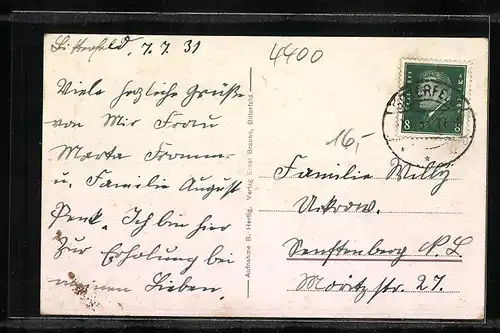 Bitterfeld, 7.7.31
Viele herzliche Grüße
von Mir Frau
Marta Fromm
u. Familie August
Penk. Ich bin hier
Zur Erholung bei
meinen Lieben.
4400
16,-
Aufnahme B. Hertig, Verlag Ernst Braune, Bitterfeld.
BITTERFELD
8 8
Familie Willy
Senftenberg N. L.
Moritzstr. 27.